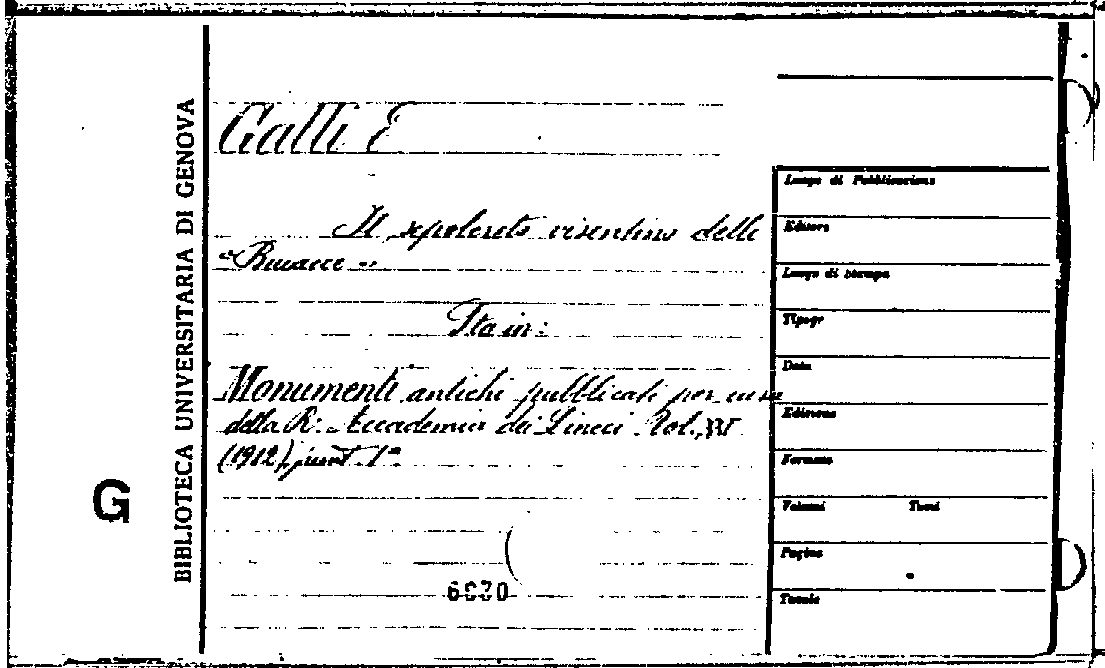 BIBLIOTECA UNIVERSITARIA DI GENOVA
G
Galli E
Il sepolcreto visentino delle
"Bucacce"
Sta in:
Monumenti antichi pubblicati per cura
della R. Accademia dei Lincei Vol.
(1912), punt. 1ª
Luogo di Pubblicazione
Editore
Luogo di Stampa
Tipogr
Data
Edizione
Formato
Volumi Tomi
Pagine
Tavole